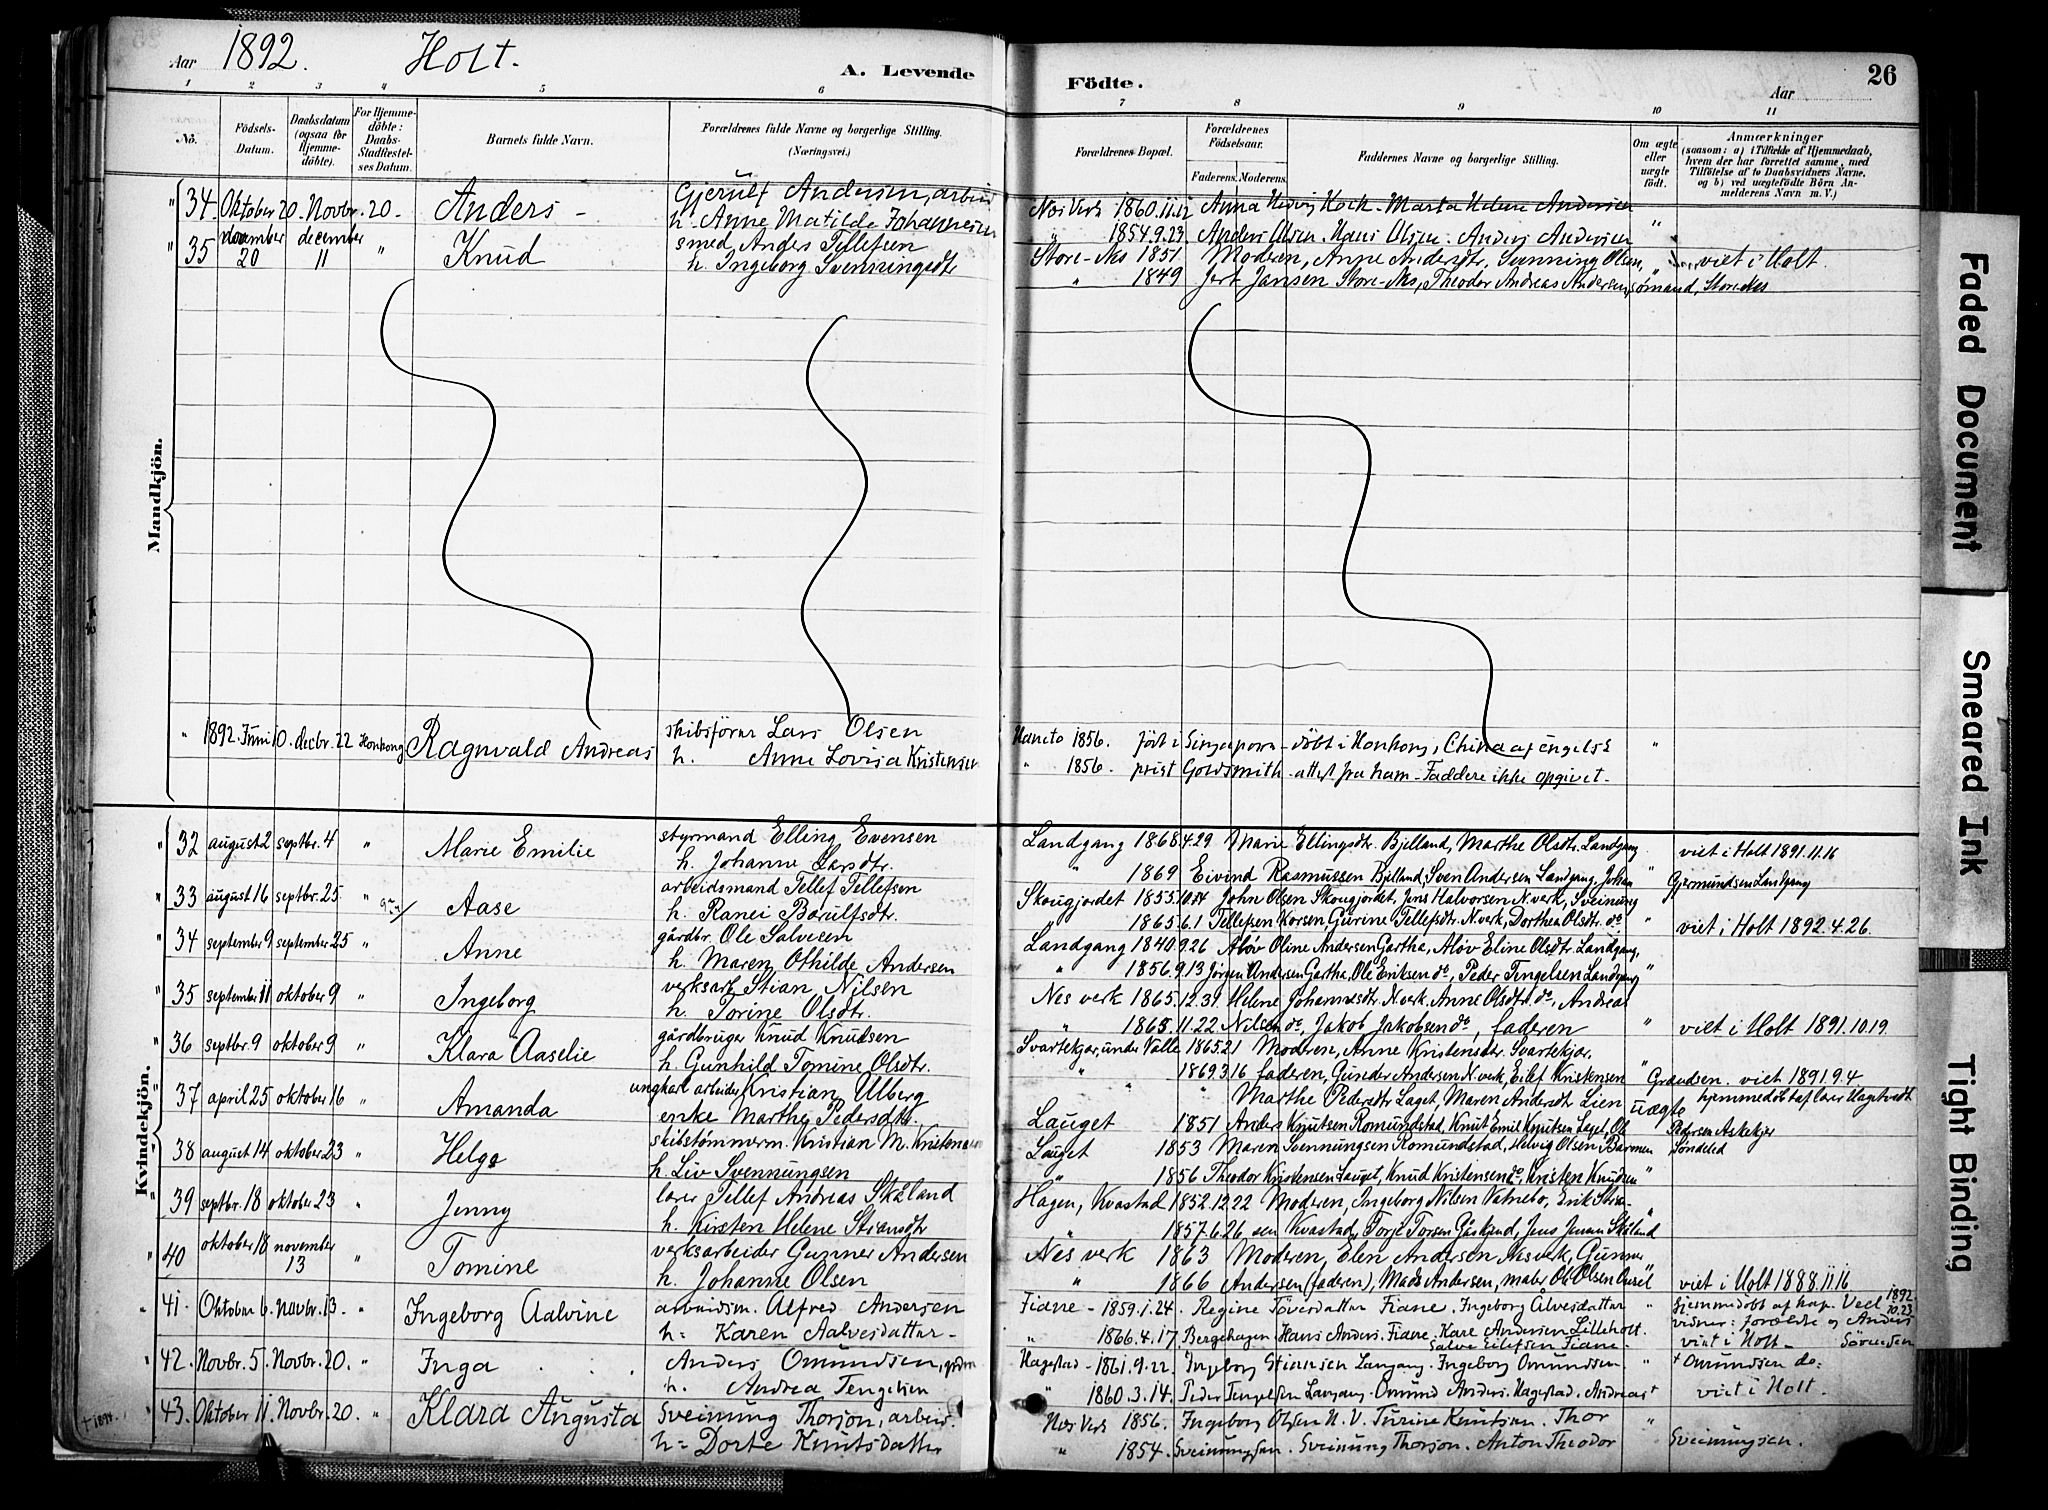 Aar 1892. Holt. A. Levende Födte. Aar 26
1 2 3 4 5 6 7 8 9 10 11
No. Födsels-Datum. Daabsdatum (ogsaa for Hjemmedöbte). For Hjemmedöbte: Daabs-Stadfæstelses Datum. Barnets fulde Navn. Forældrenes fulde Navne og borgerlige Stilling. (Næringsvei.) Forældrenes Bopæl. Forældrenes Födselsaar. Faderens. Moderens. Faddernes Navne og borgerlige Stilling. Om ægte eller uægte födt. Anmærkninger (saasom: a) i Tilfælde af Hjemmedaab, hvem der har forrettet samme, med Tilföielse af to Daabsvidners Navne, og b) ved uægtefödte Börn Anmelderens Navn m. V.)
Mandkjön.
" 34 Oktober 20. Novbr. 20 - Anders - Gjerulf Andersen, arbeid Nes Verk 1860.11.12 Anna Hedvig Kock. Marta Helene Andersen
h. Anne Matilde Johannesen " 1854.9.23. Anders Olsen. Hans Olsen. Anders Andersen "
" 35 november 20 december 11 " Knud smed Anders Tellefsen Store-Nes 1851 Moderen, Anne Andersdtr, Svenning Olsen, viet i Holt.
h. Ingeborg Svenningsdtr " 1849 Jert Jansen Store-Nes, Theodor Andreas Andersen, sømand, Store Nes
" 1892. Juni 10. decbr. 22 Honkong Ragnvald Andreas skibsförer Lars Olsen 1856. født i Singapore - döbt i Honkong, China af engelsk "
h. Anne Lovisa Kristensen " 1856. prest Goldsmith - attest fra ham - Faddere ikke opgivet -
Kvindekjön.
" 32 august 2 septbr. 4 " Marie Emilie styrmand Elling Evensen Landgang 1868.4.29 Marie Ellingsdtr. Bjelland, Marthe Olsdtr. Landgang viet i Holt 1891.11.16
h. Johanne Larsdtr. " 1869 Eivind Rasmussen Bjelland, Sven Andersen Landgang, Johan " Gjermundsen Landgang
" 33 august 16 septbr. 25 " Aase arbeidsmand Tellef Tellefsen Skougjordet 1855.10. John Olsen Skougjordet, Jens Halvorsen N. verk, Sveinung
h. Ranei Barulfsdtr. " 1865.6.1 Tellefsen Korsen, Gurine Tellefsdtr. N. verk, Dorthea Olsdtr. do " viet i Holt 1892.4.26.
" 34 september 9 september 25 " Anne gårdbr. Ole Salvesen Landgang 1840.9.26 Aløv Oline Andersen Gartha, Aløv Eline Olsdtr. Landgang,
h. Maren Othilde Andersen " 1856.9.13 Jörgen Andersen Gartha, Ole Eriksen do, Peder Tengelsen Landgang "
" 35 september 11 oktober 9 " Ingeborg verksarb. Stian Nilsen Nes verk 1865.12.31 Helene Johannesdtr. N. verk, Anne Olsdtr. do, Andreas
h. Torine Olsdtr. " 1865.11.22 Nilsen do, Jakob Jakobsen do, faderen " viet i Holt 1891.10.19.
" 36 septbr. 9 oktober 9 " Klara Aaselie gårdbruger Knud Knudsen Svartekjær, under Valle 1865.2.1 Moderen, Anne Kristensdtr. Svartekjær.
h. Gunhild Tomine Olsdtr. " 1869.3.16 faderen, Gunder Andersen N. verk, Eilef Kristensen " viet 1891.9.4
" 37 april 25 oktober 16 " Amanda ungkarl arbeider Kristian Ulberg " " Marthe Pedersdtr Laget, Maren Andersdtr Lien uægte hjemmedöbt af lærer Hagetvedt
enke Marthe Pedersdtr. Lauget 1851 Anders Knutsen Romundstad, Knut Emil Knutsen Laget, Ole Pedersen Askekjer
" 38 august 14 oktober 23 " Helga skibstömmerm. Kristian M. Kristensen Lauget 1853 Maren Svennungsen Romundstad, Helvig Olsen Barmen Söndeled
h. Liv Svennungsen " 1856 Theodor Kristensen Lauget, Knud Kristensen do, Kristen Knudsen "
" 39 septbr. 18 oktober 23 " Jenny lærer Tellef Andreas Skåland Hagen, Kvastad 1852.12.22 Moderen, Ingeborg Nilsen Vatnebo, Erik
h. Kirsten Helene " 1857.6.26 sen Kvastad, Torje Torsen, Jens Jensen Skåland "
" 40 oktober 18 november 13 " Tomine verksarbeider Gunner Andersen Nes verk 1863 Moderen, Elen Andersen Nesverk, Gunner
h. Johanne Olsen " 1866 Andersen (faderen), Mads Andersen, maler Ole Olsen " viet i Holt 1888.11.16
" 41. Oktober 6. Novbr. 13. " Ingeborg Aalvine arbeidsm. Alfred Andersen Fiane - 1859.1.24. Regine Tovesdatter Fiane. Ingeborg Ålvesdatter " hjemmedöbt af kap. Vedl 1892 10.23
h = Karen Aalvesdatter - " 1866.4.17. Bergehagen. Hans Anders. Fiane. Kare Andersen Lilleholt. Salve Eilefsen Fiane. vidner: forældre og Anders Sörensen viet i Holt -
" 42. Novbr. 5. Novbr. 20. " Inga Anders Omundsen, Hagestad - 1861.9.22. Ingeborg Stiansen Langang. Ingeborg Omundsen - " + Omundsen do:
h. Andrea Tengelsen " 1860.3.14. Peder Tengelsen Langang. Omund Anders. Hagestad. Andreas + viet i Holt.
+ 1894. 43. Oktober 11. Novbr. 20. " Klara Augusta Sveinung Thorson, arbeid. Nes Verk 1856. Ingeborg Olsen N. V. Turine Knutsen. Thor "
h = Dorte Knutsdatter " 1854. Sveinungsen. Sveinung Thorson. Anton Theodor Sveinungsen.
Faded Document
Smeared Ink
Tight Binding